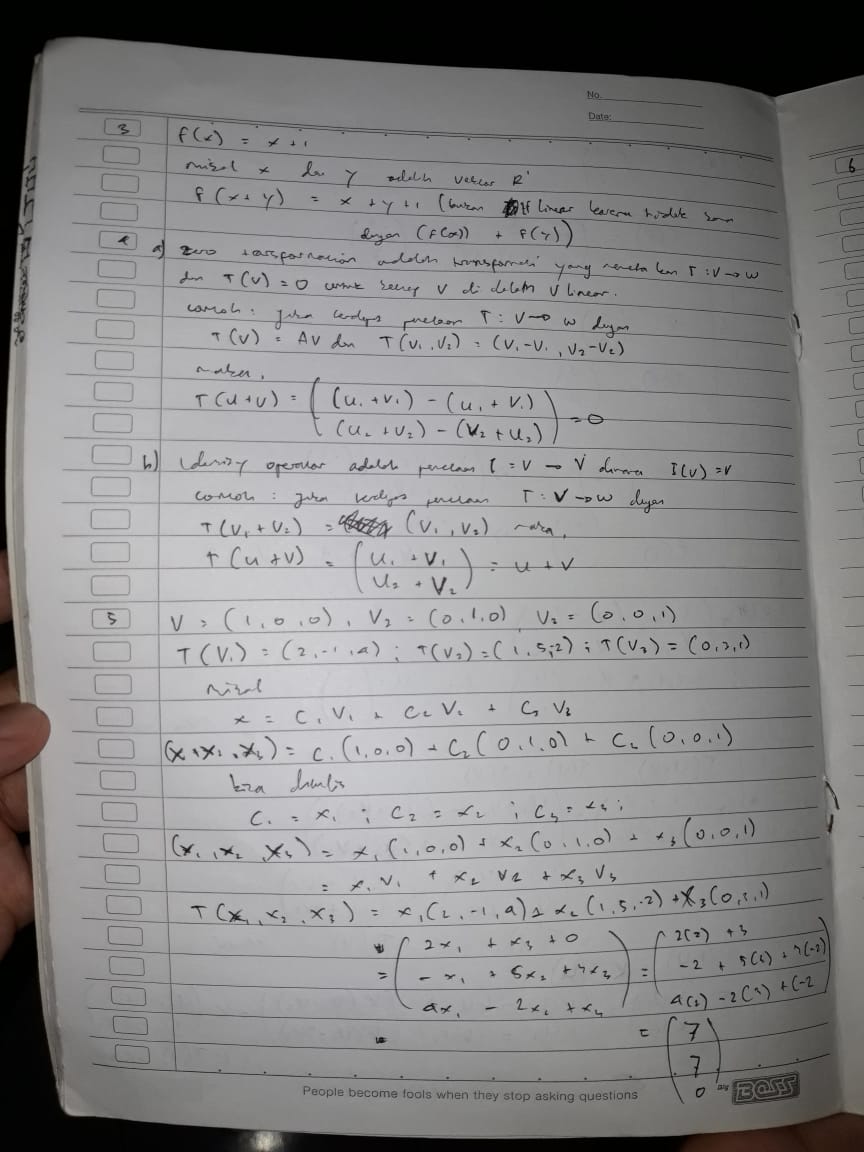 No.
Date:
3 f(x) = x + 1
misal x dan y adalah vektor R'
f(x + y) = x + y + 1 (bukan linear karena tidak sama
dengan (f(x)) + f(y))
4 a) zero transformation adalah transformasi yang memetakan T : V → W
dan T(V) = 0 untuk setiap V di dalam V linear.
contoh : jika terdapat pemetaan T : V → W dengan
T(V) = AV dan T(V₁, V₂) = (V₁ - V₁, V₂ - V₂)
maka,
T(U + V) = ( (U₁ + V₁) - (U₁ + V₁)
(U₂ + V₂) - (V₂ + U₂) ) = 0
b) Identity operator adalah pemetaan I = V → V dimana I(V) = V
contoh : jika terdapat pemetaan T : V → W dengan
T(V₁ + V₂) = (V₁, V₂) maka,
T(U + V) = ( U₁ + V₁
U₂ + V₂ ) = U + V
5 V = (1,0,0), V₂ = (0,1,0) V₃ = (0,0,1)
T(V₁) = (2,-1,4) ; T(V₂) = (1,5,-2) ; T(V₃) = (0,3,1)
misal
x = C₁V₁ + C₂V₂ + C₃V₃
(x₁, x₂, x₃) = C₁(1,0,0) + C₂(0,1,0) + C₂(0,0,1)
bisa ditulis
C₁ = x₁ ; C₂ = x₂ ; C₃ = x₃ ;
(x₁, x₂, x₃) = x₁(1,0,0) + x₂(0,1,0) + x₃(0,0,1)
= x₁V₁ + x₂V₂ + x₃V₃
T(x₁, x₂, x₃) = x₁(2,-1,4) + x₂(1,5,-2) + x₃(0,3,1)
= ( 2x₁ + x₂ + 0 ) = ( 2(2) + 3
- x₁ + 5x₂ + 3x₃ -2 + 5(3) + 3(-2)
4x₁ - 2x₂ + x₃ 4(2) - 2(3) + (-2
= ( 7
7
0
People become fools when they stop asking questions
BOSS
6